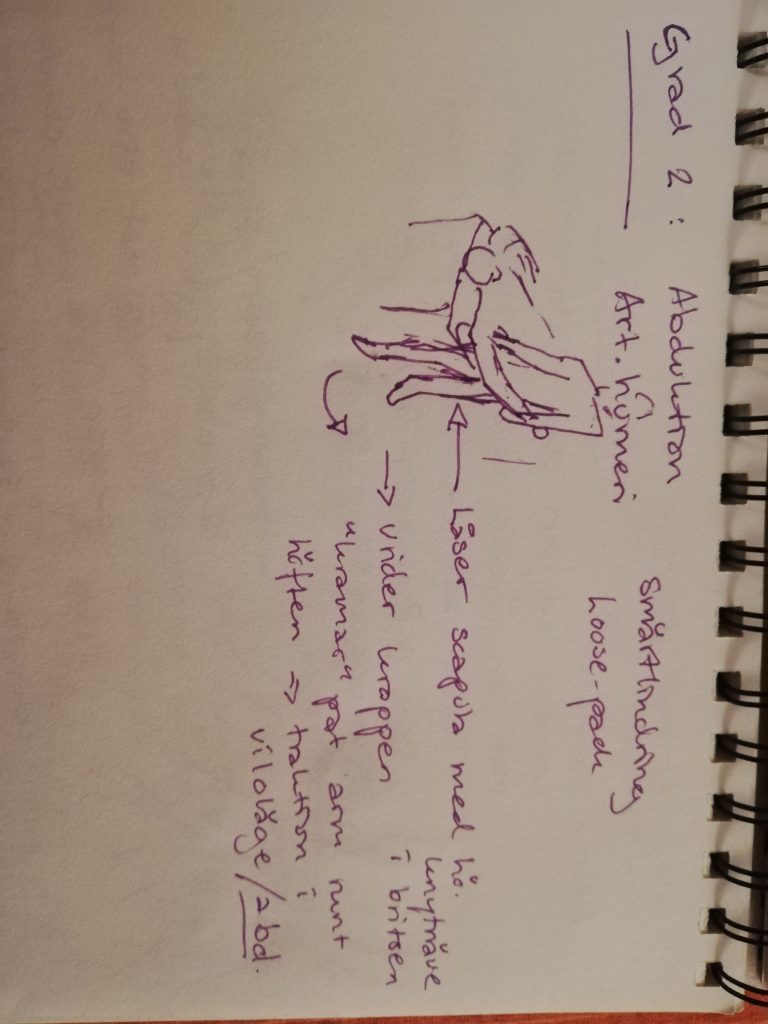 Grad 2:
Abduktion
Art. humeri
Smärtlindring
Loose-pack
Låser scapula med hö.
knytnäve
i britsen
→ vrider kroppen
"kramar" pat arm runt
höften => traktion i
viloläge/abd.